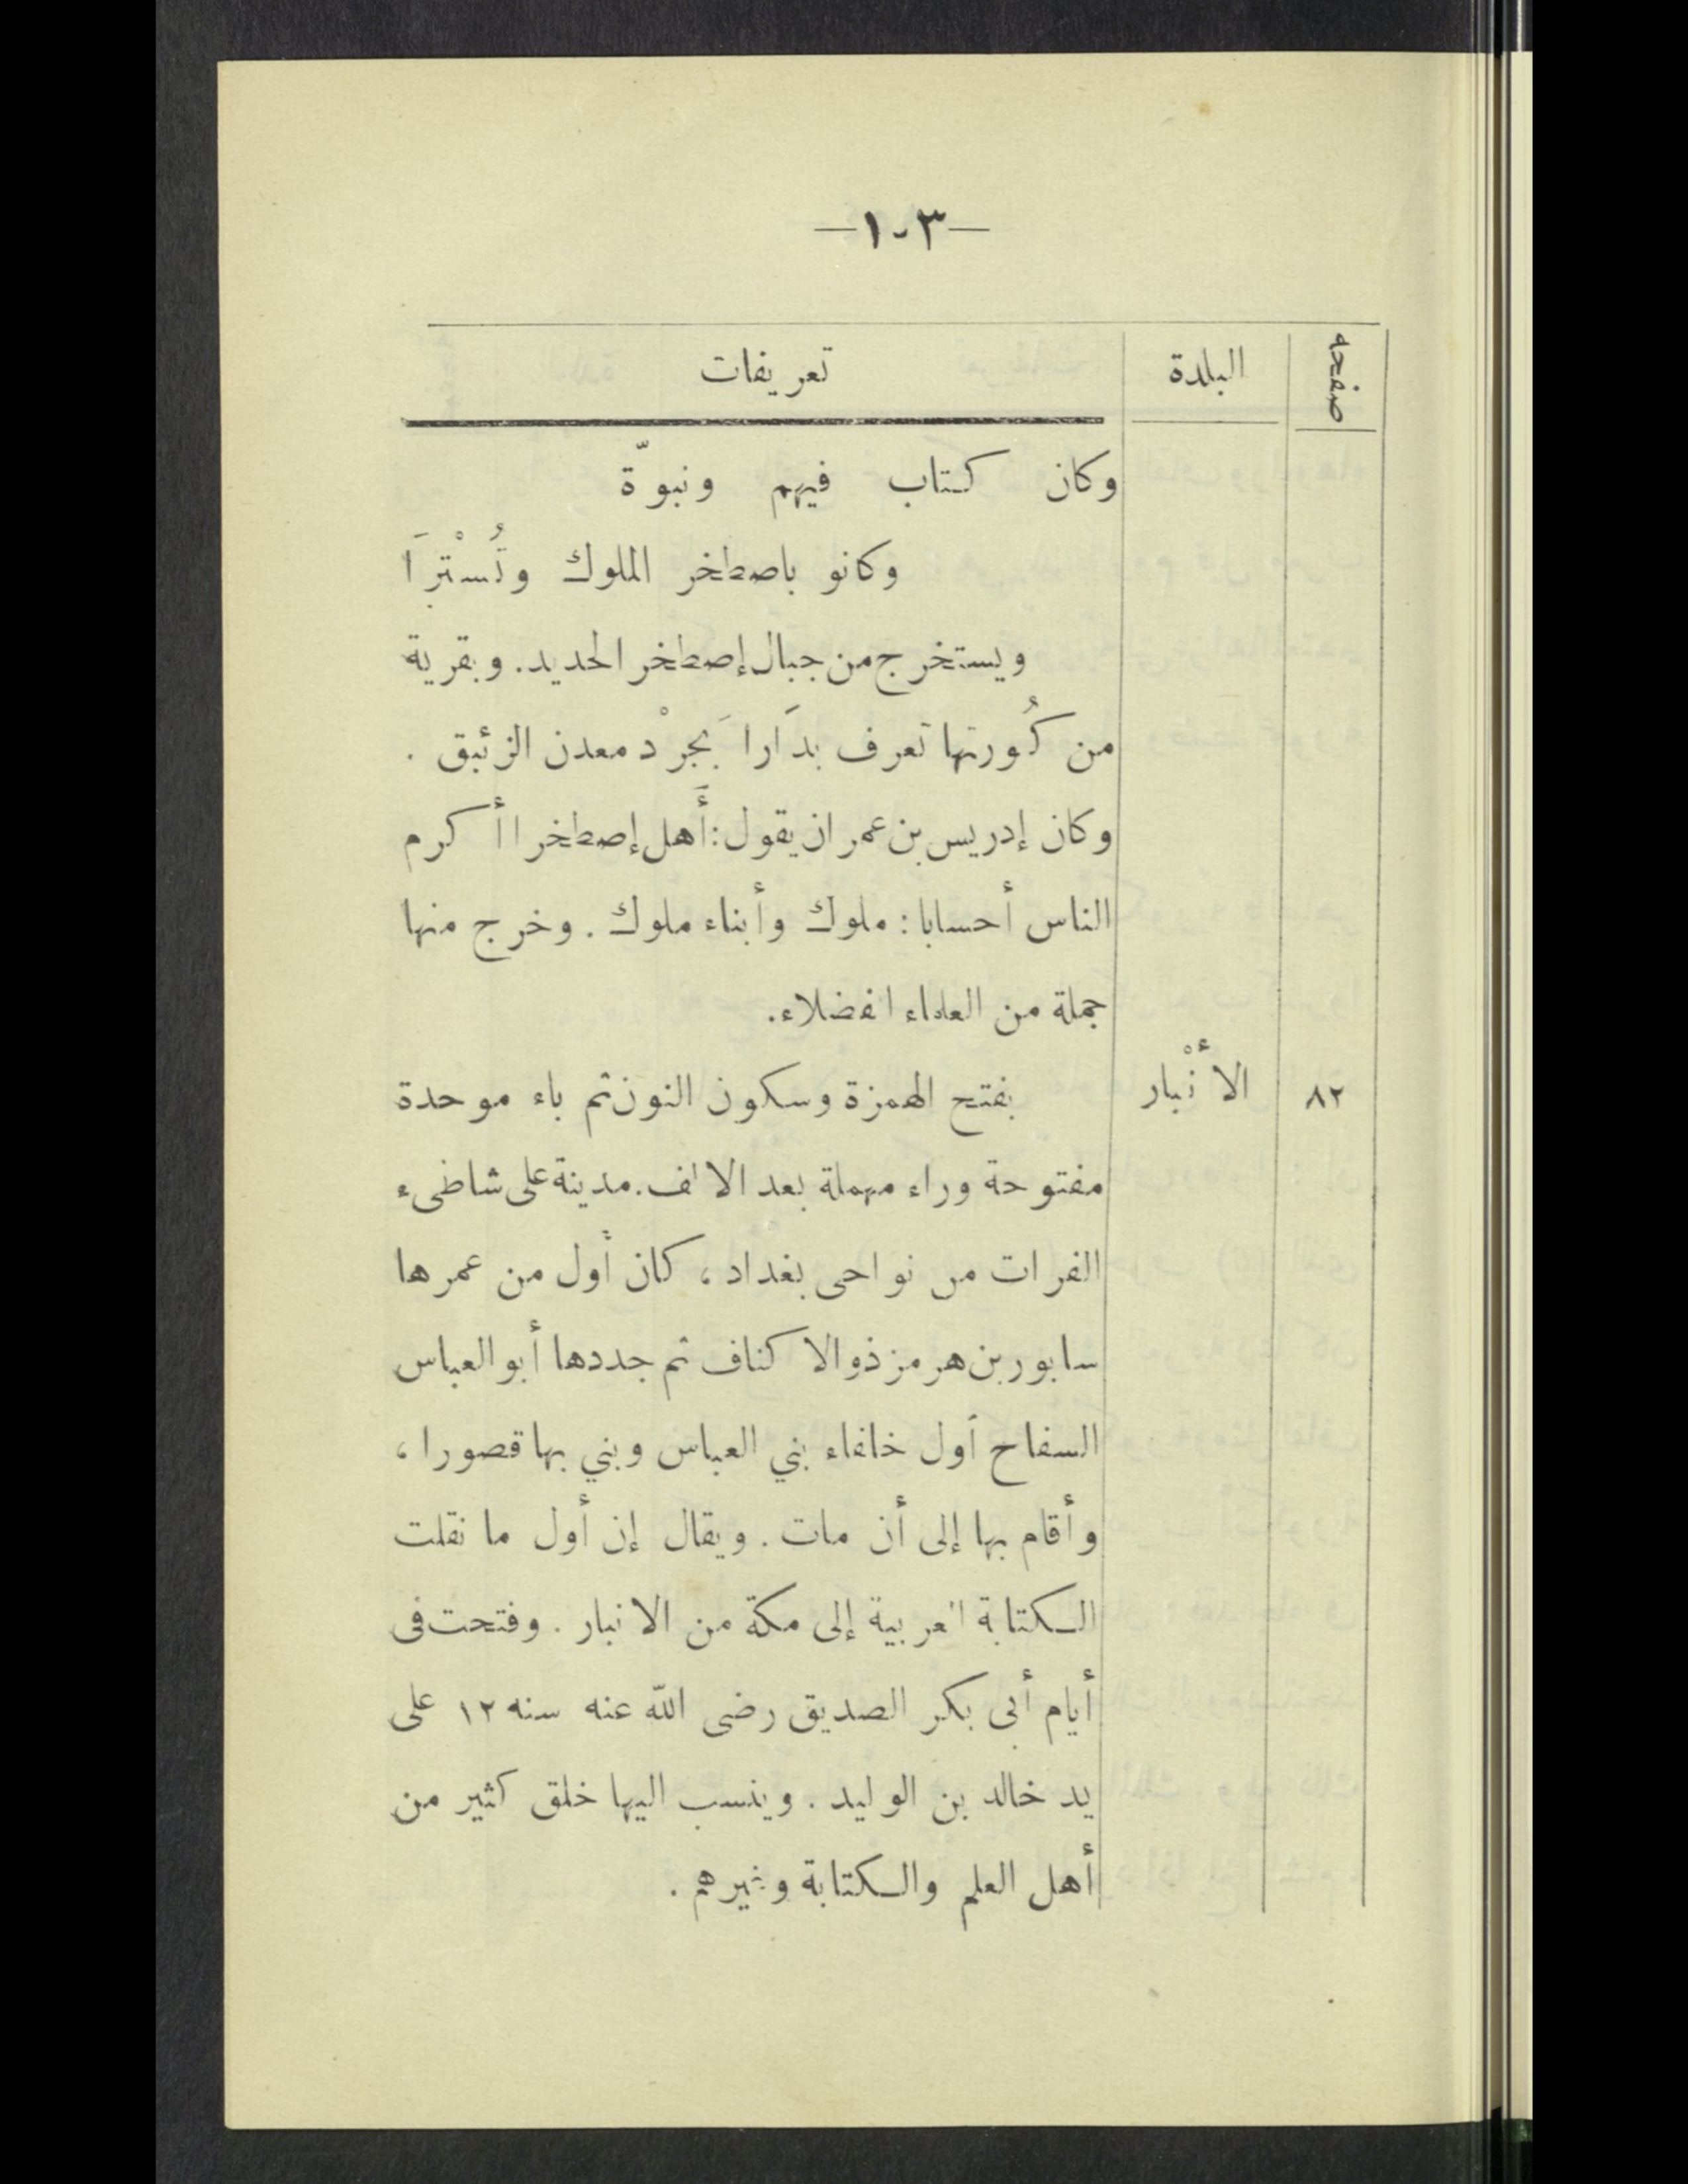 —١٠٣—
صفحه البلدة تعريفات
وكان كتاب فيهم ونبوّة
وكانو باصطخر الملوك وتُسْترَا
ويستخرج من جبال إصطخر الحديد. وبقرية
من كُورتها تعرف بدَارا بَجرْد معدن الزئبق .
وكان إدريس بن عمران يقول: أَهل إصطخر ا أكرم
الناس أحسابا: ملوك وأبناء ملوك . وخرج منها
جملة من العلماء الفضلاء.
٨٢ الأنْبار بفتح الهمزة وسكون النون ثم باء موحدة
مفتوحة وراء مهملة بعد الالف. مدينة على شاطىء
الفرات من نواحى بغداد ، كان أول من عمرها
سابور بن هرمز ذو الاكناف ثم جددها أبو العباس
السفاح أول خلفاء بني العباس وبني بها قصورا ،
وأقام بها إلى أن مات . ويقال إن أول ما نقلت
الكتابة العربية إلى مكة من الانبار . وفتحت فى
أيام أبى بكر الصديق رضى الله عنه سنه ١٢ على
يد خالد بن الوليد . وينسب اليها خلق كثير من
أهل العلم والكتابة وغيرهم .